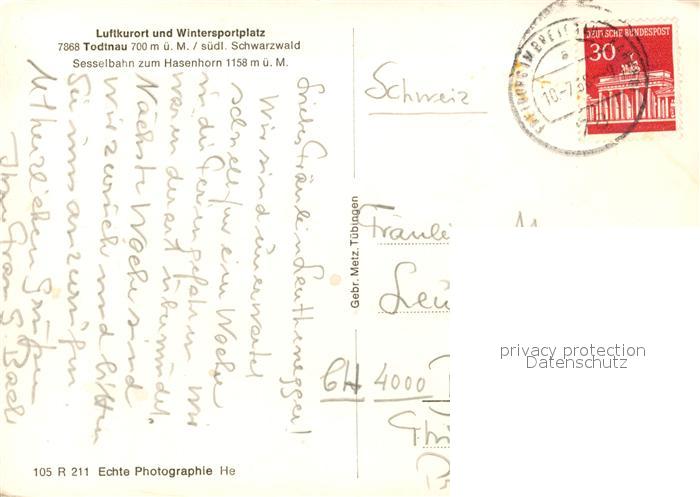 Luftkurort und Wintersportplatz
7868 Todtnau 700 m ü. M. / südl. Schwarzwald
Sesselbahn zum Hasenhorn 1158 m ü. M.
Liebes Fräulein Leuthenegger!
Wir sind unerwartet
schnell für eine Woche
in die Ferien gefahren. Wir
waren derart übermüdet.
Nächste Woche sind
wir zurück und bitten
Sie uns anzurufen
M. herzlichen Grüßen
Ihre Frau G. Bach
105 R 211 Echte Photographie He
Gebr. Metz, Tübingen
DEUTSCHE BUNDESPOST
30
FREIBURG IM BREISGAU
Schweiz
Fräulei
Leu
CH 4000
privacy protection
Datenschutz